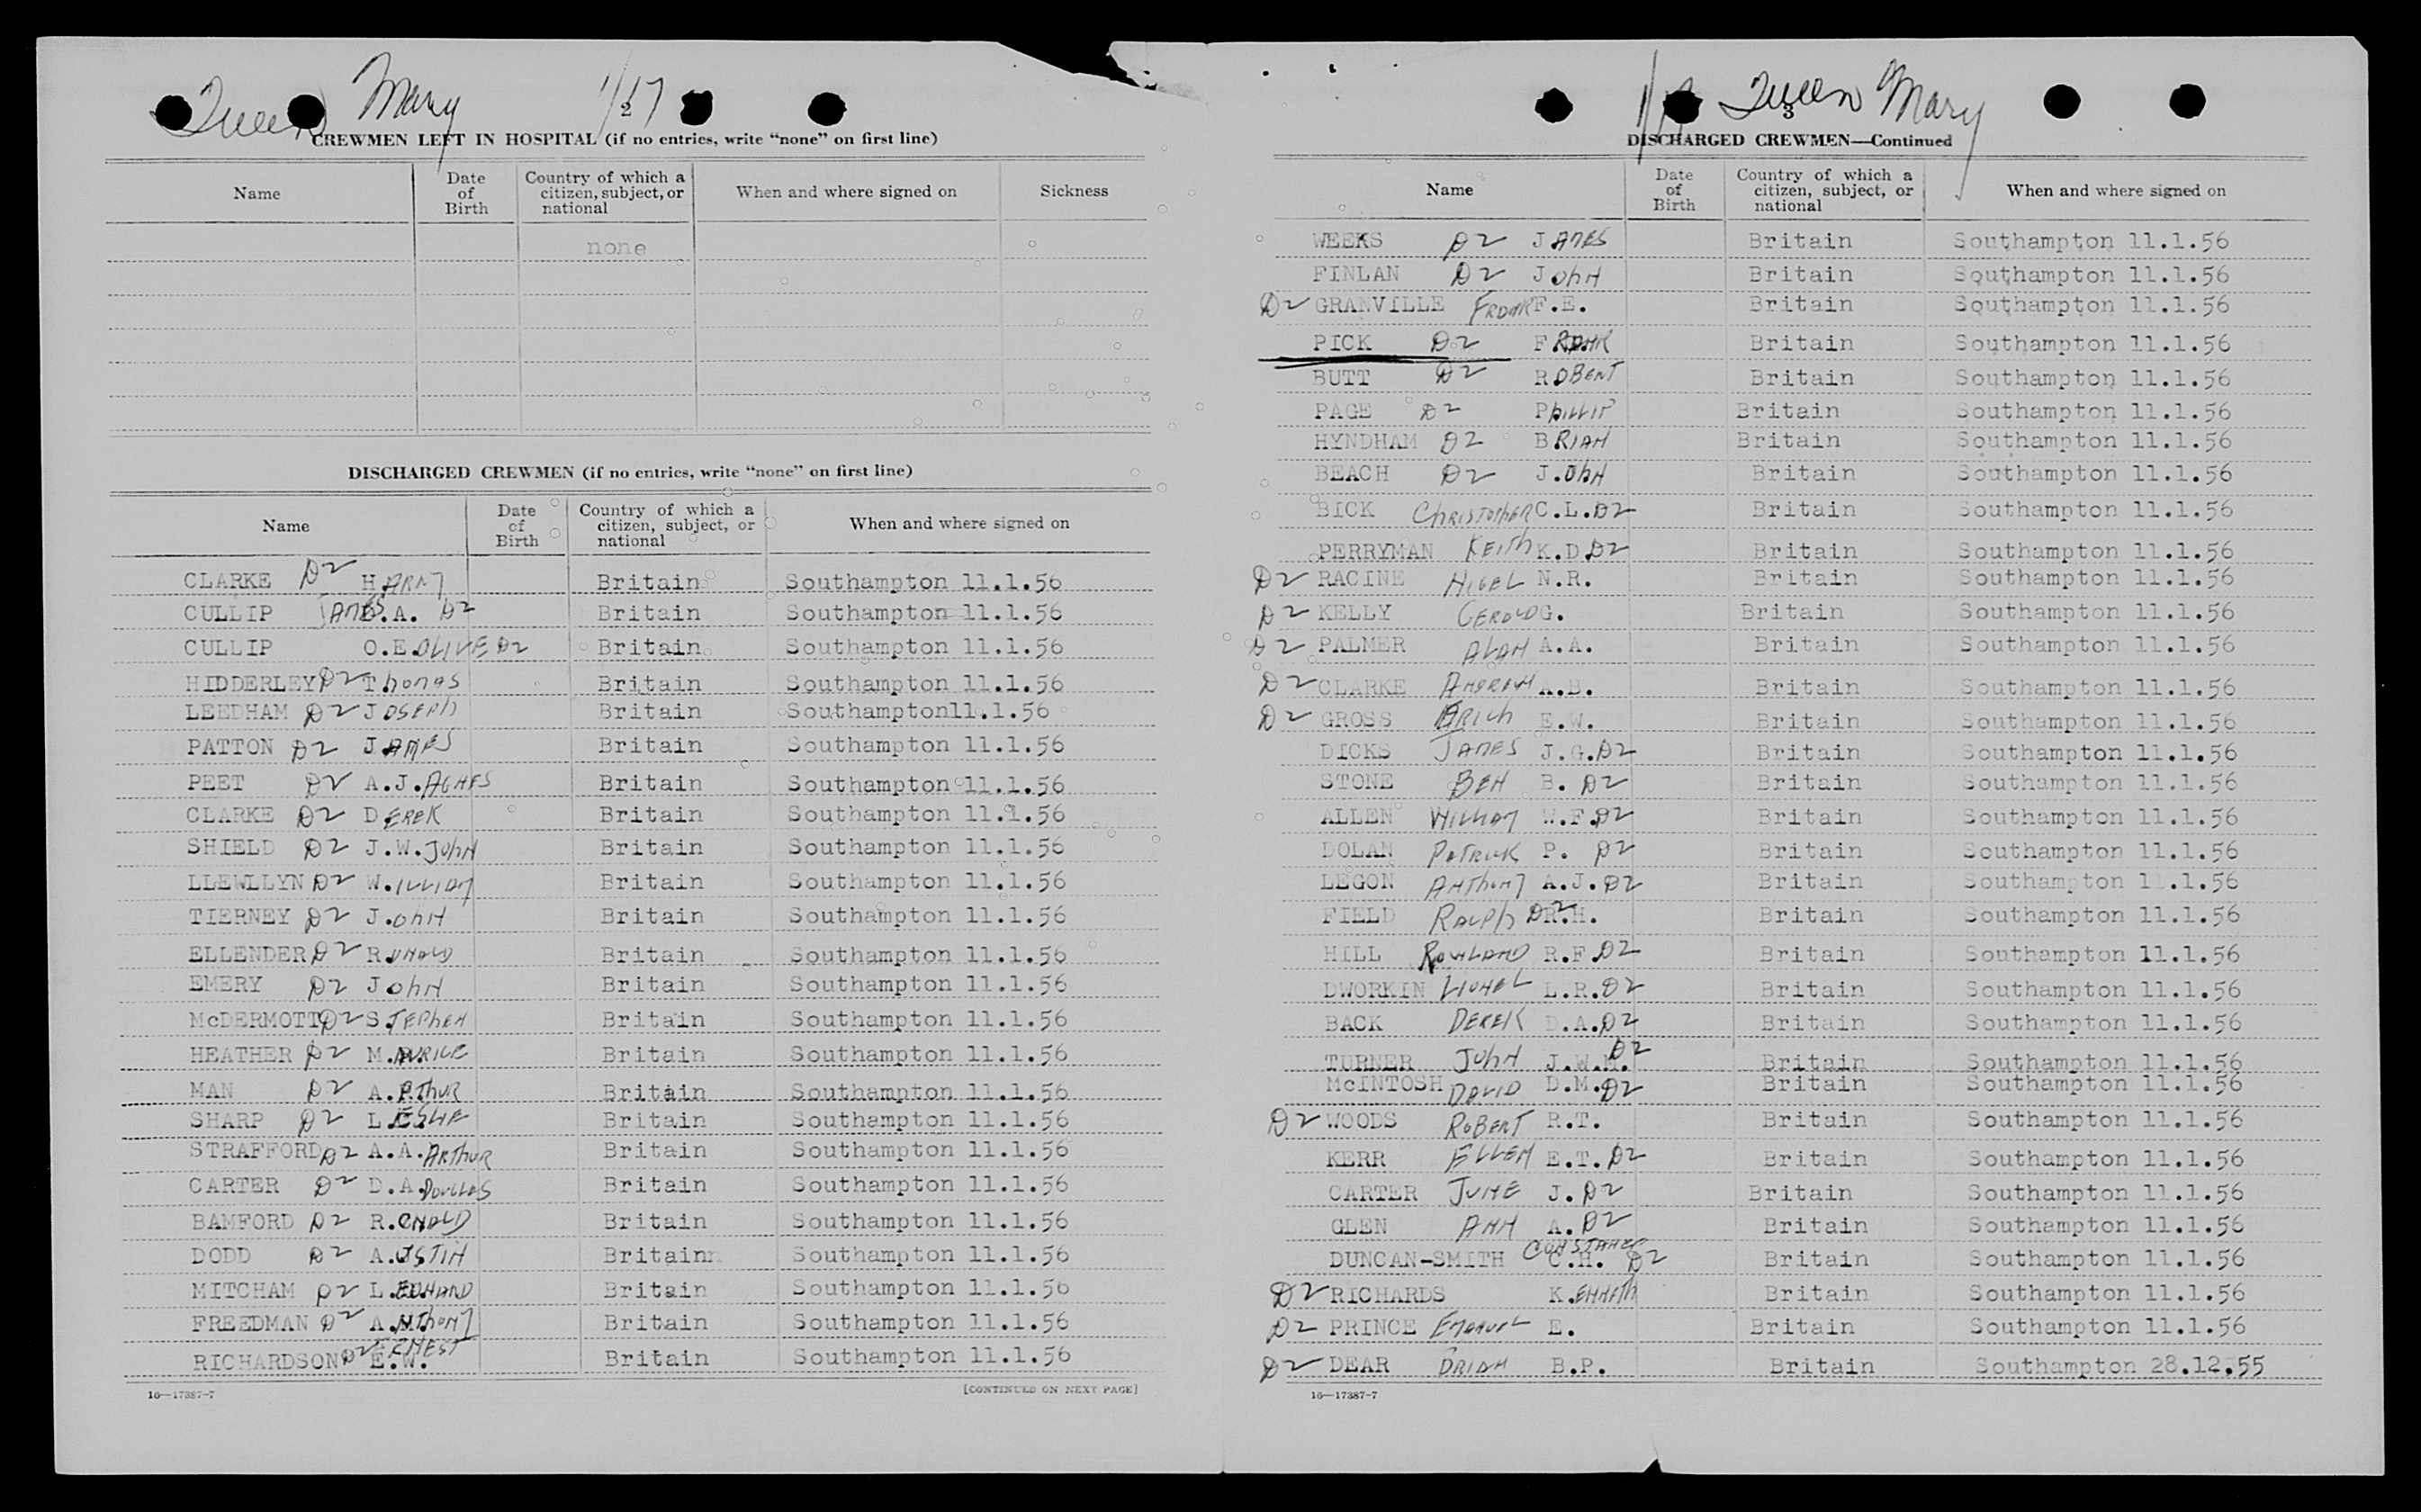 Queen Mary 1/27
CREWMEN LEFT IN HOSPITAL (if no entries, write “none” on first line)
Name Date of Birth Country of which a citizen, subject, or national When and where signed on Sickness
none
DISCHARGED CREWMEN (if no entries, write “none” on first line)
Name Date of Birth Country of which a citizen, subject, or national When and where signed on
CLARKE D2 HARRY Britain Southampton 11.1.56
CULLIP JAMES A. D2 Britain Southampton 11.1.56
CULLIP O.E. OLIVE D2 Britain Southampton 11.1.56
HIDDERLEY D2 Thomas Britain Southampton 11.1.56
LEEDHAM D2 JOSEPh Britain Southampton11.1.56
PATTON D2 JAMES Britain Southampton 11.1.56
PEET D2 A.J. AGNES Britain Southampton 11.1.56
CLARKE D2 DEREK Britain Southampton 11.1.56
SHIELD D2 J.W. JohN Britain Southampton 11.1.56
LLEWLLYN D2 W.ILLIAM Britain Southampton 11.1.56
TIERNEY D2 J.ohN Britain Southampton 11.1.56
ELLENDER D2 RONALD Britain Southampton 11.1.56
EMERY D2 JohN Britain Southampton 11.1.56
McDERMOTT D2 STEPhEN Britain Southampton 11.1.56
HEATHER D2 M.AURICE Britain Southampton 11.1.56
MAN D2 A.RThUR Britain Southampton 11.1.56
SHARP D2 LESLIE Britain Southampton 11.1.56
STRAFFORD D2 A.A. ARThUR Britain Southampton 11.1.56
CARTER D2 D.A. DOUGLAS Britain Southampton 11.1.56
BAMFORD D2 R.ONALD Britain Southampton 11.1.56
DODD D2 A.USTIN Britain Southampton 11.1.56
MITCHAM D2 L.EONARD Britain Southampton 11.1.56
FREEDMAN D2 A.NThONY Britain Southampton 11.1.56
RICHARDSON D2 ERNEST E.W. Britain Southampton 11.1.56
16—17387-7 [CONTINUED ON NEXT PAGE]
Queen Mary
3
DISCHARGED CREWMEN—Continued
Name Date of Birth Country of which a citizen, subject, or national When and where signed on
WEEKS D2 JAMES Britain Southampton 11.1.56
FINLAN D2 JohN Britain Southampton 11.1.56
D2 GRANVILLE FRANK F.E. Britain Southampton 11.1.56
PICK D2 FRANK Britain Southampton 11.1.56
BUTT D2 ROBERT Britain Southampton 11.1.56
PAGE D2 PhILLIP Britain Southampton 11.1.56
HYNDHAM D2 BRIAN Britain Southampton 11.1.56
BEACH D2 J.OhN Britain Southampton 11.1.56
BICK ChRISTOPhER C.L. D2 Britain Southampton 11.1.56
PERRYMAN KEITh K.D D2 Britain Southampton 11.1.56
D2 RACINE NIGEL N.R. Britain Southampton 11.1.56
D2 KELLY GEROLD G. Britain Southampton 11.1.56
D2 PALMER ALAN A.A. Britain Southampton 11.1.56
D2 CLARKE ANDREW A.B. Britain Southampton 11.1.56
D2 GROSS ERICh E.W. Britain Southampton 11.1.56
DICKS JAMES J.G. D2 Britain Southampton 11.1.56
STONE BEN B. D2 Britain Southampton 11.1.56
ALLEN WILLIAM W.F. D2 Britain Southampton 11.1.56
DOLAN PATRICK P. D2 Britain Southampton 11.1.56
LEGON ANThONY A.J. D2 Britain Southampton 11.1.56
FIELD RALPh D2 R.H. Britain Southampton 11.1.56
HILL ROWLAND R.F D2 Britain Southampton 11.1.56
DWORKIN LIONEL L.R. D2 Britain Southampton 11.1.56
BACK DEREK D.A. D2 Britain Southampton 11.1.56
TURNER JohN J.W.M. D2 Britain Southampton 11.1.56
McINTOSH DAVID D.M. D2 Britain Southampton 11.1.56
D2 WOODS ROBERT R.T. Britain Southampton 11.1.56
KERR ELLEN E.T. D2 Britain Southampton 11.1.56
CARTER JUNE J. D2 Britain Southampton 11.1.56
GLEN ANN A. D2 Britain Southampton 11.1.56
DUNCAN-SMITH CONSTANCE C.H. D2 Britain Southampton 11.1.56
D2 RICHARDS K.ENNETh Britain Southampton 11.1.56
D2 PRINCE EMANUEL E. Britain Southampton 11.1.56
D2 DEAR BRIAN B.P. Britain Southampton 28.12.55
16—17387-7